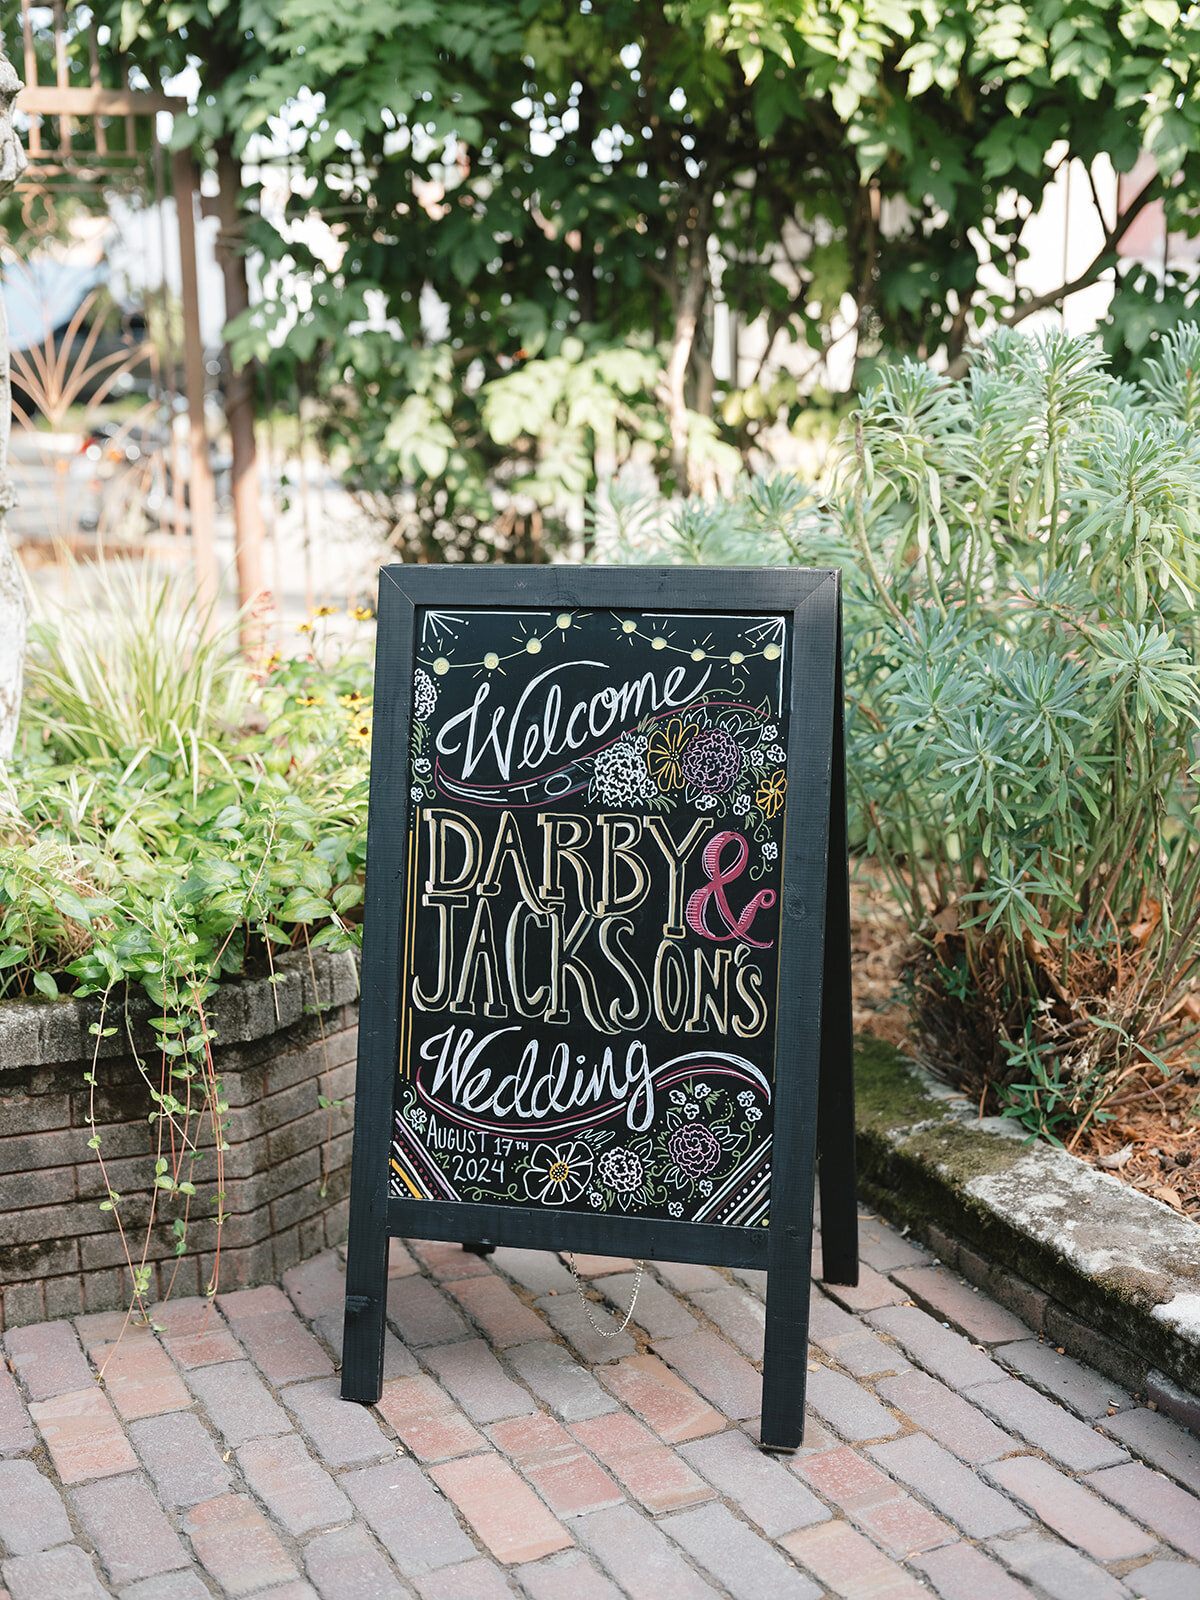 Welcome
TO
DARBY &
JACKSON'S
Wedding
AUGUST 17TH
2024